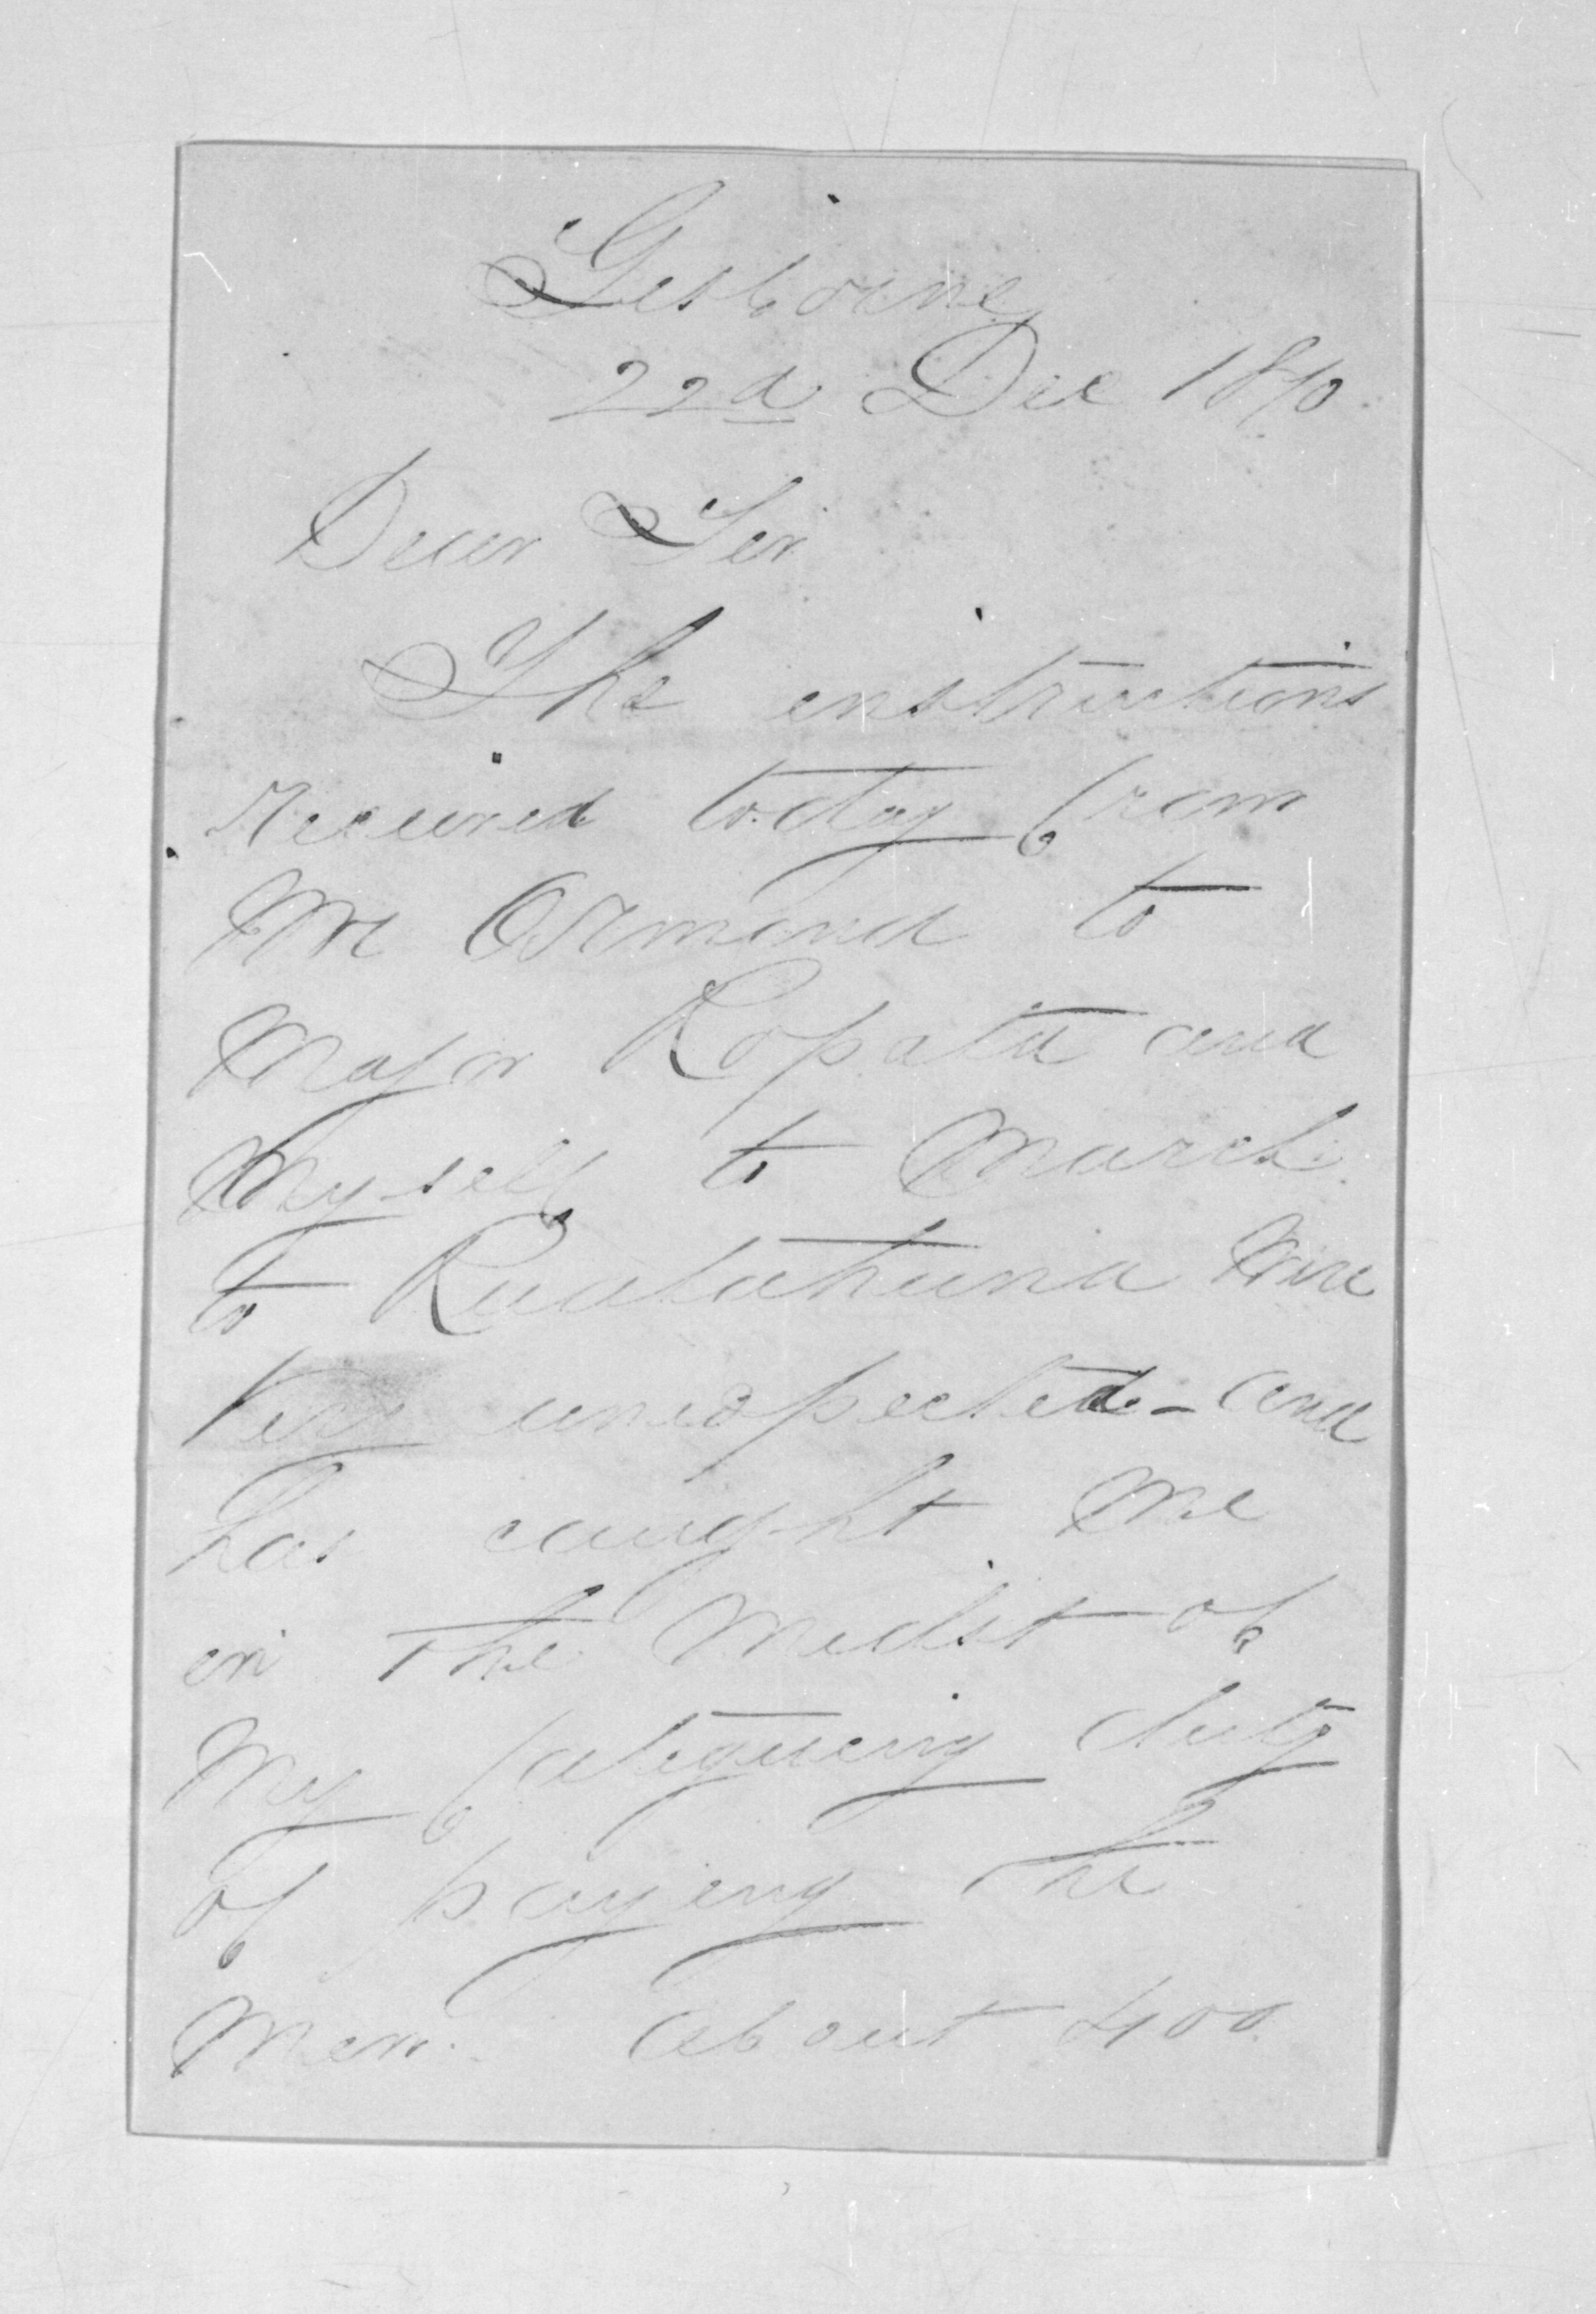 Gisborne
22d Dec 1870.
Dear Sir
The instructions
received to.day from
Mr Ormond to
Major Ropata and
Myself to March
to Ruatahuna
Very unexpected - and
has caught me
in the Midst of
My fatigueing duty
of paying the
Men. About 400